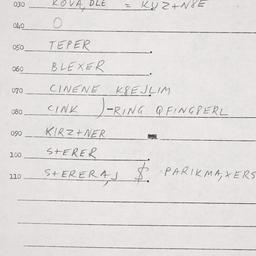 030 KOVA, DLE = KUZ+NSE
040 O
050 TEPER
060 BLEXER
070 CINENE KSEJLIM
080 CINK )-RING QFINGPERL
090 KIRZ+NER
100 S+ERER
110 S+ERERAJ $ PARIKMA,XERS